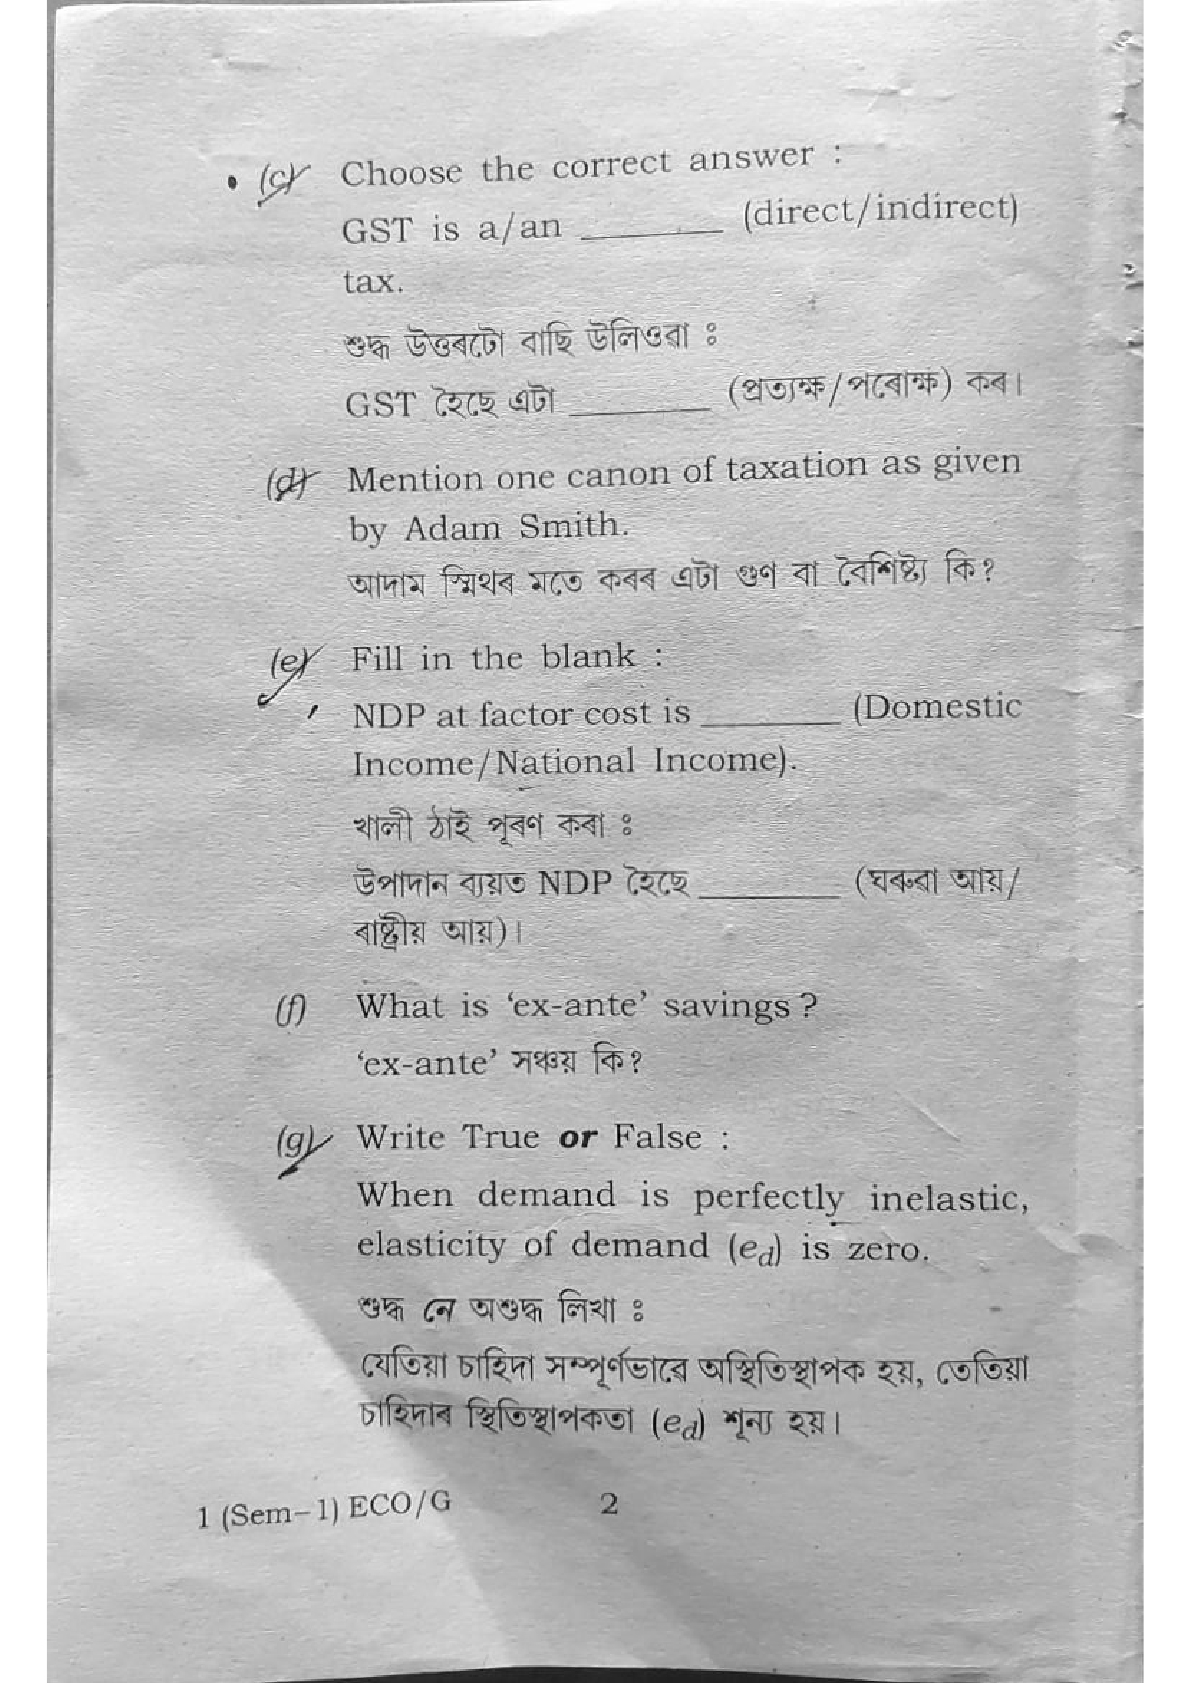 (c) Choose the correct answer :
GST is a/an ________ (direct/indirect)
tax.
শুদ্ধ উত্তৰটো বাছি উলিওৱা ঃ
GST হৈছে এটা ________ (প্ৰত্যক্ষ/পৰোক্ষ) কৰ।
(d) Mention one canon of taxation as given
by Adam Smith.
আদাম স্মিথৰ মতে কৰৰ এটা গুণ বা বৈশিষ্ট্য কি?
(e) Fill in the blank :
NDP at factor cost is ________ (Domestic
Income/National Income).
খালী ঠাই পূৰণ কৰা ঃ
উপাদান ব্যয়ত NDP হৈছে ________ (ঘৰুৱা আয়/
ৰাষ্ট্ৰীয় আয়)।
(f) What is ‘ex-ante’ savings?
‘ex-ante’ সঞ্চয় কি?
(g) Write True or False :
When demand is perfectly inelastic,
elasticity of demand (ed) is zero.
শুদ্ধ নে অশুদ্ধ লিখা ঃ
যেতিয়া চাহিদা সম্পূৰ্ণভাৱে অস্থিতিস্থাপক হয়, তেতিয়া
চাহিদাৰ স্থিতিস্থাপকতা (ed) শূন্য হয়।
1 (Sem-1) ECO/G 2